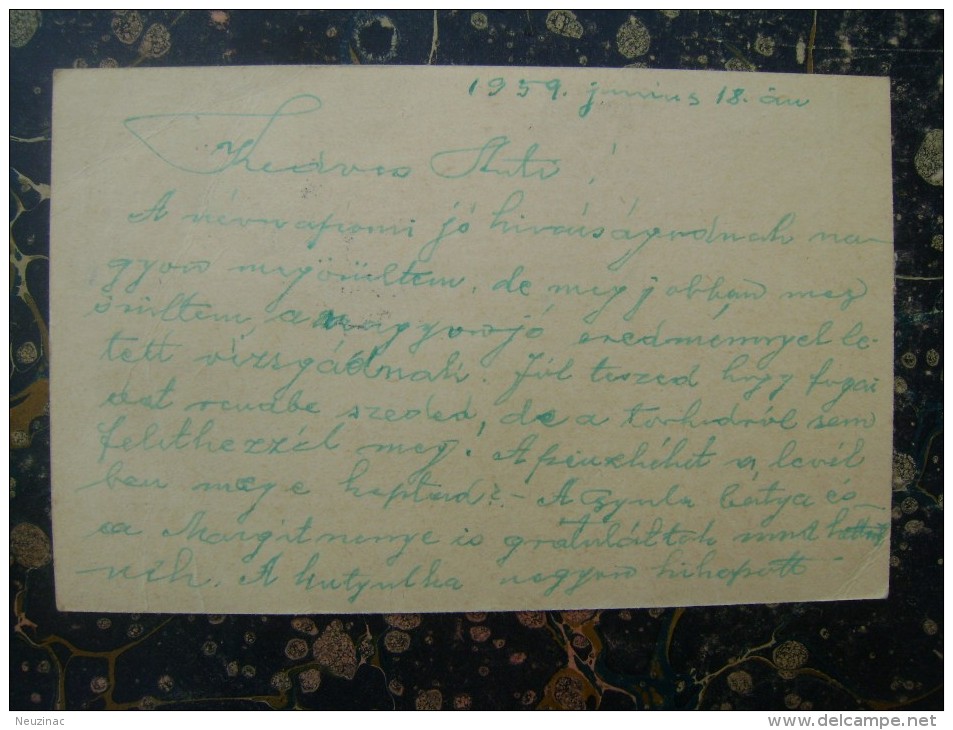 1959. junius 18. án
Kedves Anti!
A névnapomi jó kivánságodnak na-
gyon megörültem, de meg jobban meg
örültem, a nagyon jó eredmennyel le-
tett vizsgádnak. Jól teszed hogy fogai
dat rendbe szeded, de a torkodról sem
felelkezzél meg. A pénzkéhit a levél
ben meg e kaptad? - A Gyula bátya és
a Margit nenye is gratuláltak mind
nek. A kutyulka nagyon kikapott
Neuzinac
www.delcampe.net